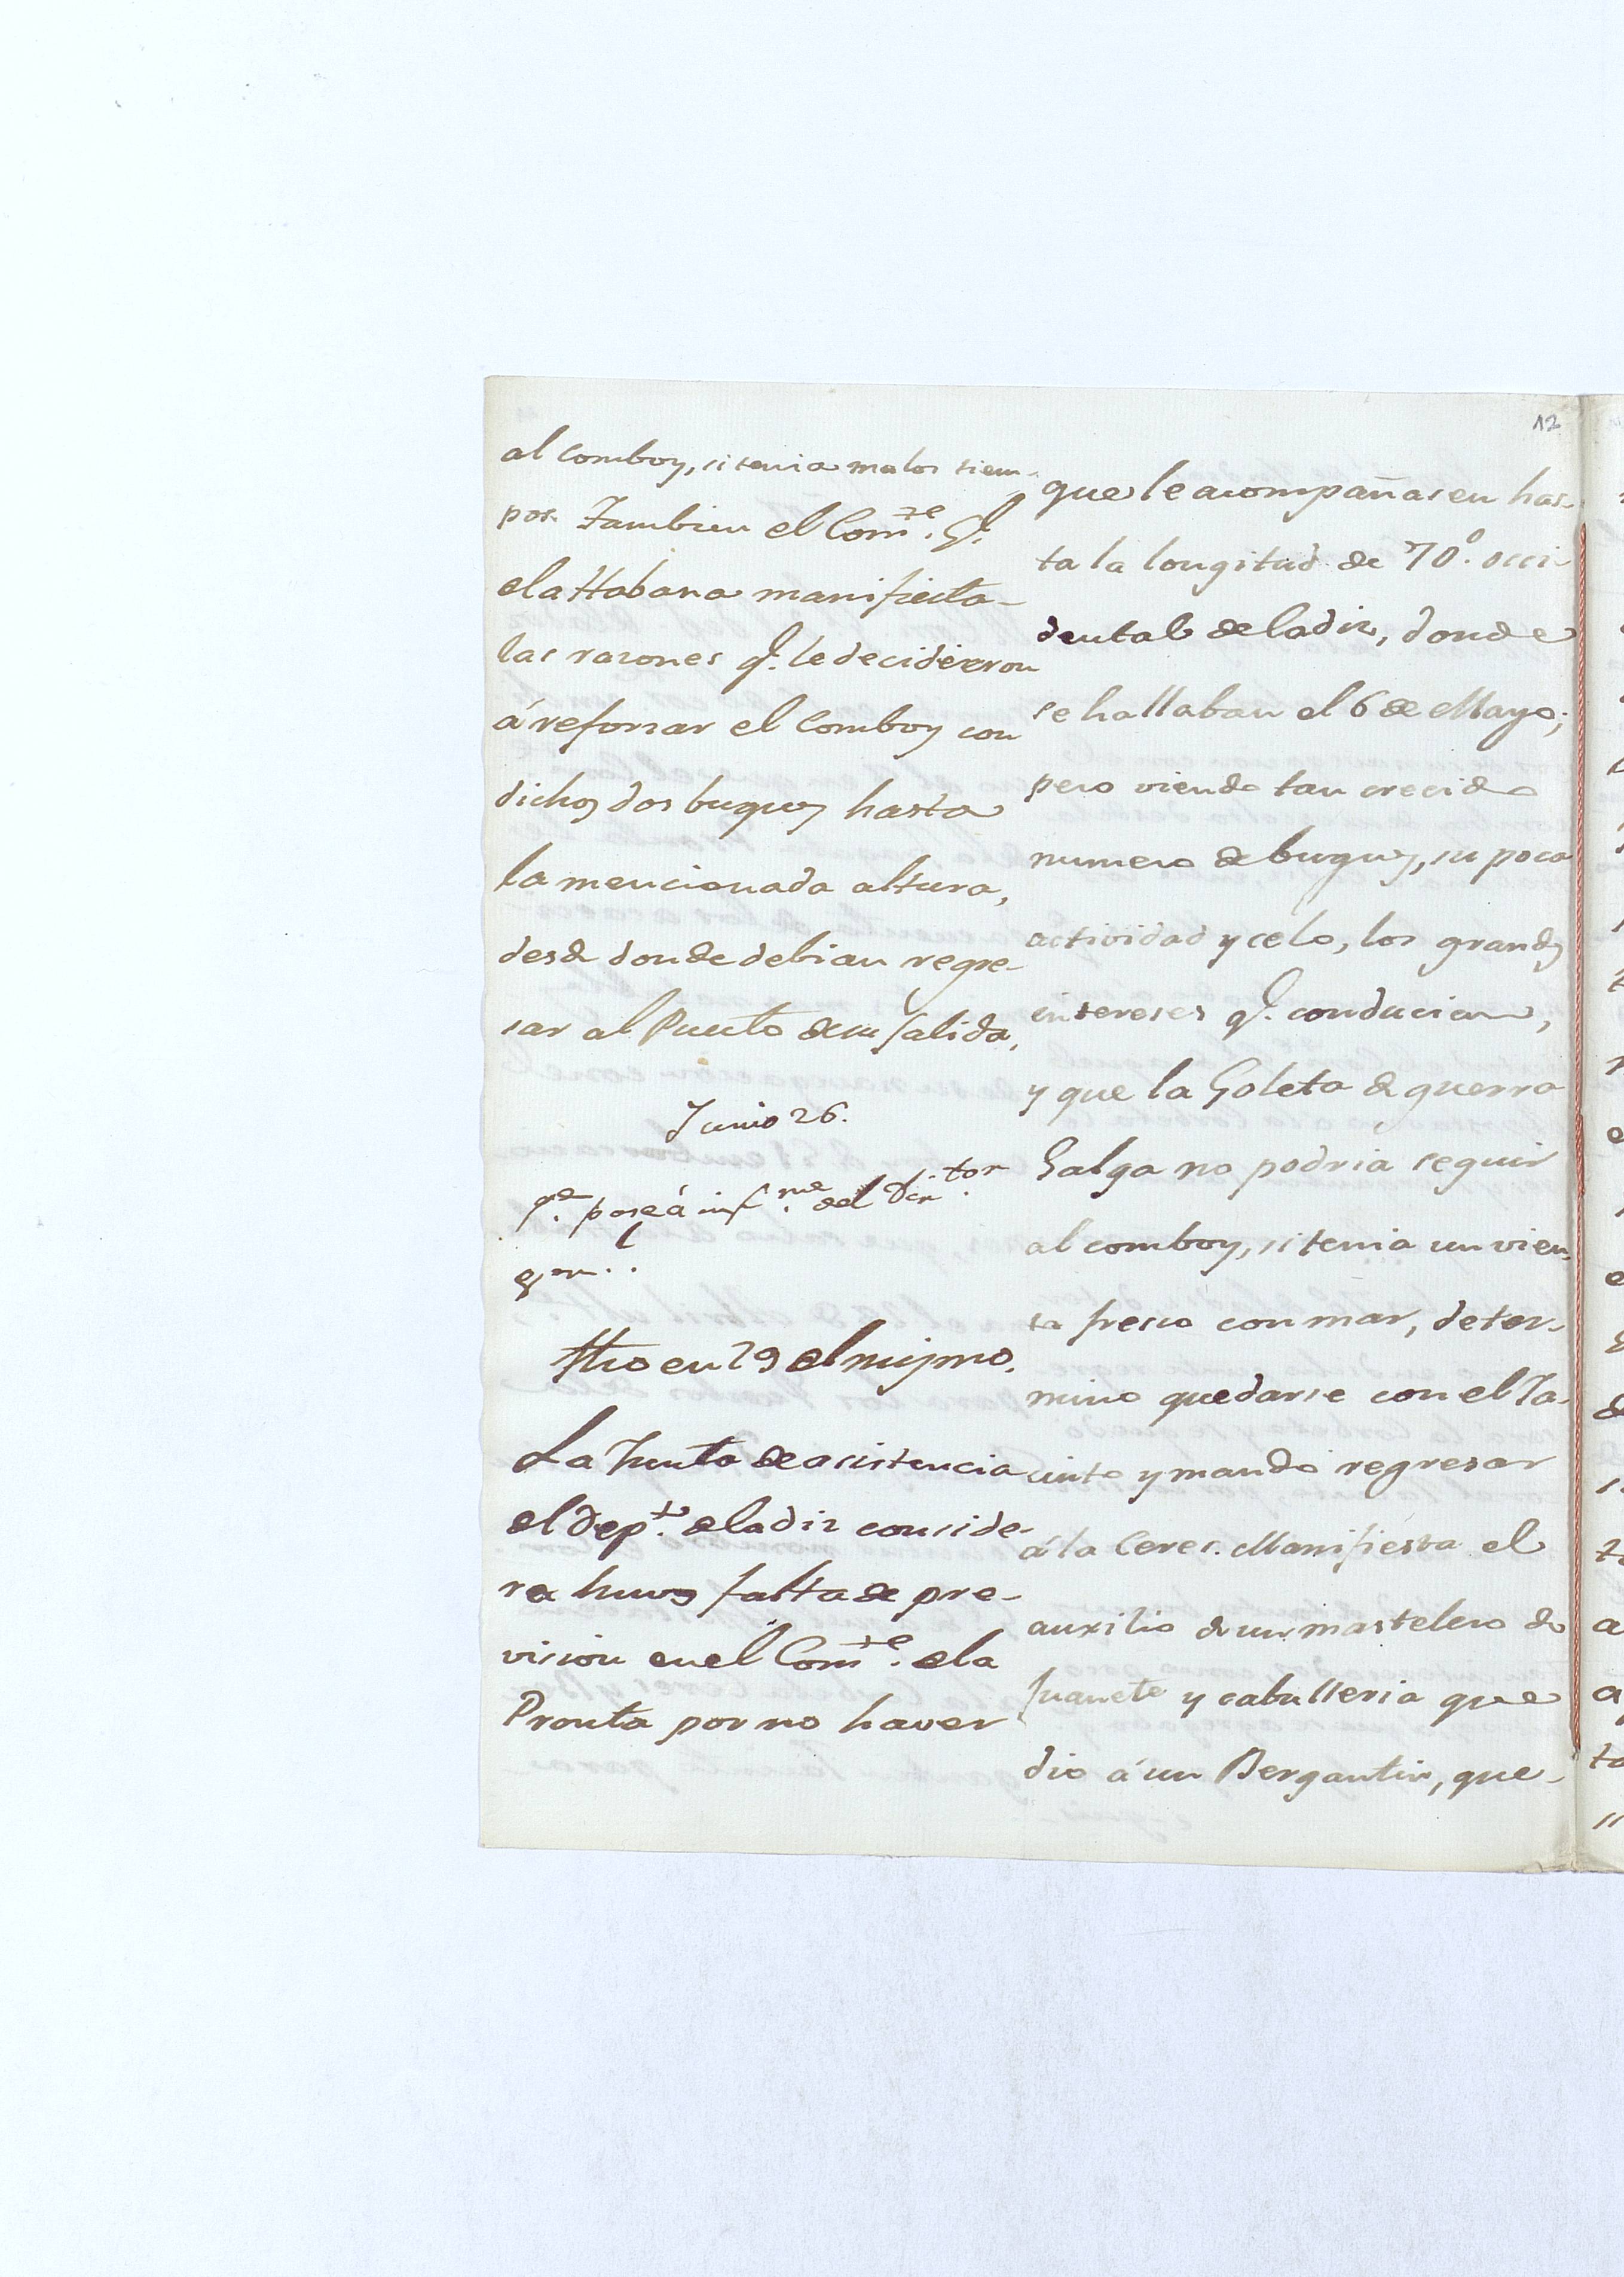 al comboy, si tenia malos tiem-
pos. Tambien el Com.te G.l
de la Habana manifiesta
las razones q.e le decidieron
á reforzar el comboy con
dichos dos buques hasta
la mencionada altura,
desde donde debian regre-
sar al Puerto de su salida.
Junio 26.
q.e pase á inf.me del Dir.tor
g.ral
Hho en 29 del mismo.
La Junta de asistencia
del Dep.to de Cadiz conside-
ra huvo falta de pre-
vision en el Com.te de la
Pronta por no haver
12
que le acompañasen has-
ta la longitud de 70º. occi-
dental de Cadiz, donde
se hallaban el 6 de Mayo;
pero viendo tan crecido
numero de buques, su poca
actividad y celo, los grandes
intereses q.e conducian,
y que la Goleta de guerra
Galga no podria seguir
al comboy, si tenia un vien-
to fresco con mar, deter-
mino quedarse con el Ja-
cinto y mando regresar
á la Ceres. Manifiesta el
auxilio de un mastelero de
juanete y cabulleria que
dio á un Bergantin, que